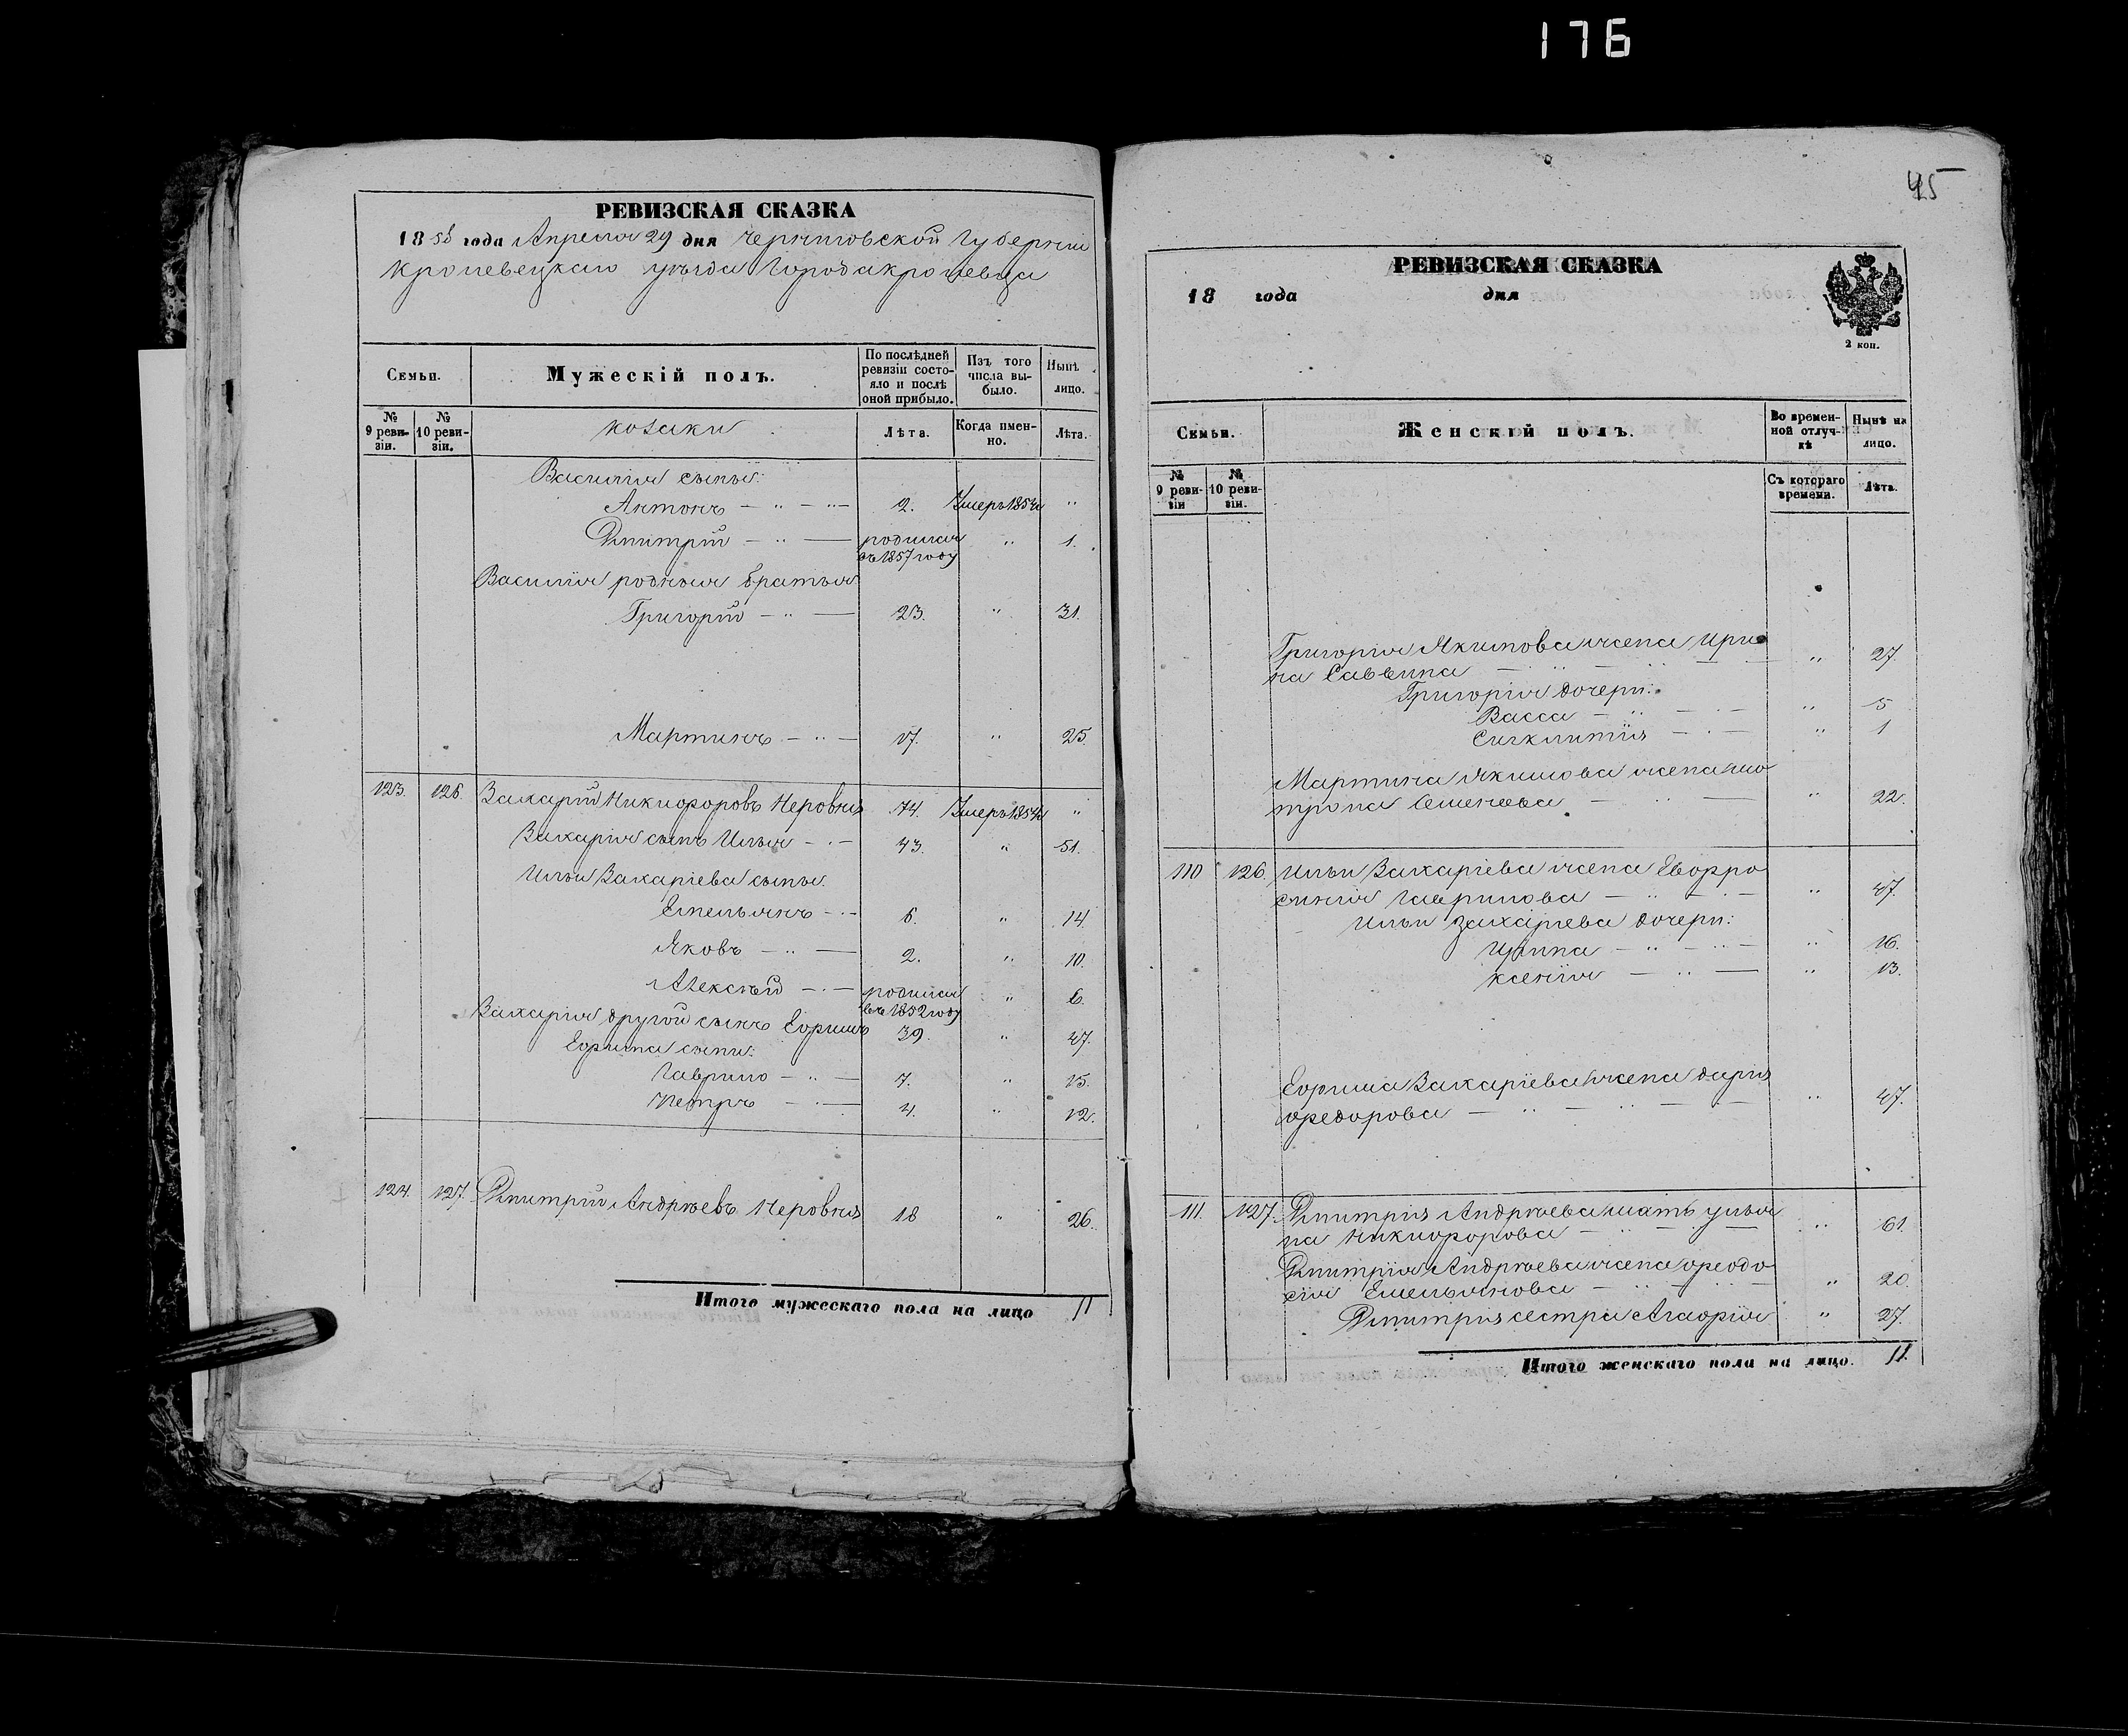 176
РЕВИЗСКАЯ СКАЗКА
1858 года Апреля 29 дня Черниговской Губернии
Кролевецкаго уѣзда Города Кролевца
Семьи.
Мужескій полъ.
По послѣдней ревизіи состояло и послѣ оной прибыло.
Изъ того числа выбыло.
Нынѣ лицо.
№ 9 ревизіи.
№ 10 ревизіи.
козаки
Лѣта.
Когда именно.
Лѣта.
Василія сыны:
Антонъ — " — 2. Умеръ 1854 "
Дмитрій — " — родился въ 1857 году " 1.
Василія родныя братья
Григорій — " — 23. " 31.
Мартинъ — " — 17. " 25.
123. 126. Захарій Никифоровъ Неровня 74. Умеръ 1854 "
Захарія сынъ Илья — " — 43. " 51.
Ильи Захаріева сыны:
Емельянъ — " — 6. " 14.
Яковъ — " — 2. " 10.
Алексѣй — " — родился въ 1852 году " 6.
Захарія другой сынъ Ефимъ 39. " 47.
Ефима сыны:
Гаврило — " — 7. " 15.
Петръ — " — 4. " 12.
124. 127. Дмитрій Андреевъ Неровня 18 " 26.
Итого мужескаго пола на лицо 11
45
РЕВИЗСКАЯ СКАЗКА
18 года дня
2 коп.
Семьи.
Женскій полъ.
Во временной отлучкѣ
Нынѣ на лицо.
№ 9 ревизіи
№ 10 ревизіи.
Съ котораго времени.
Лѣта.
Григорія Якимова жена Ири
на Саввина — " — " 27.
Григорія дочери:
Васса — " — " 5
Сигклитія — " — " 1
Мартина Якимова жена Ма
трона Семенова — " — " 22.
110 126. Ильи Захаріева жена Евфро
синія Гаврилова — " — " 47.
Ильи Захаріева дочери:
Ирина — " — " 16.
Ксенія — " — " 13.
Ефима Захаріева жена Дарія
Федорова — " — " 47.
111. 127. Дмитрія Андреева мать Улья
на Никифорова — " — " 61.
Дмитрія Андреева жена Феодо
сія Емельянова — " — " 20.
Дмитрія сестра Агафія " 27.
Итого женскаго пола на лицо. 11.